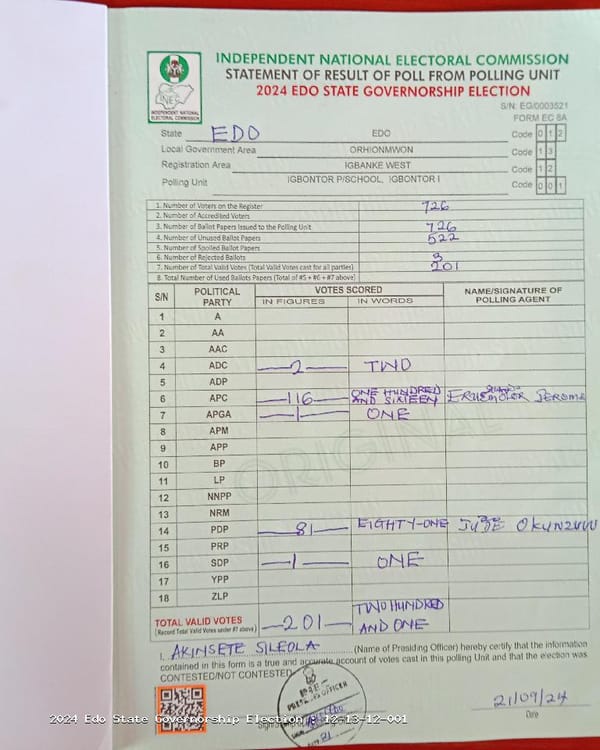 INDEPENDENT NATIONAL ELECTORAL COMMISSION
STATEMENT OF RESULT OF POLL FROM POLLING UNIT
2024 EDO STATE GOVERNORSHIP ELECTION
INDEPENDENT NATIONAL ELECTORAL COMMISSION
S/N: EG/0003521
FORM EC 8A
State EDO EDO Code 0 1 2
Local Government Area ORHIONMWON Code 1 3
Registration Area IGBANKE WEST Code 1 2
Polling Unit IGBONTOR P/SCHOOL, IGBONTOR I Code 0 0 1
1. Number of Voters on the Register 726
2. Number of Accredited Voters
3. Number of Ballot Papers Issued to the Polling Unit 726
4. Number of Unused Ballot Papers 522
5. Number of Spoiled Ballot Papers
6. Number of Rejected Ballots 3
7. Number of Total Valid Votes (Total Valid Votes cast for all parties) 201
8. Total Number of Used Ballots Papers (Total of #5 + #6 + #7 above)
S/N POLITICAL PARTY VOTES SCORED NAME/SIGNATURE OF POLLING AGENT
IN FIGURES IN WORDS
1 A
2 AA
3 AAC
4 ADC 2 TWO
5 ADP
6 APC 116 ONE HUNDRED AND SIXTEEN JEROME
7 APGA 1 ONE
8 APM
9 APP
10 BP
11 LP
12 NNPP
13 NRM
14 PDP 81 EIGHTY-ONE
15 PRP
16 SDP 1 ONE
17 YPP
18 ZLP
ORIGINAL
TOTAL VALID VOTES 201 TWO HUNDRED AND ONE
(Record Total Valid Votes under #7 above)
I, AKINSETE SILEOLA (Name of Presiding Officer) hereby certify that the information
contained in this form is a true and accurate account of votes cast in this polling Unit and that the election was
CONTESTED/NOT CONTESTED
PRESIDING OFFICER
21/09/24
Date
2024 Edo State Governorship Election 12-13-12-001